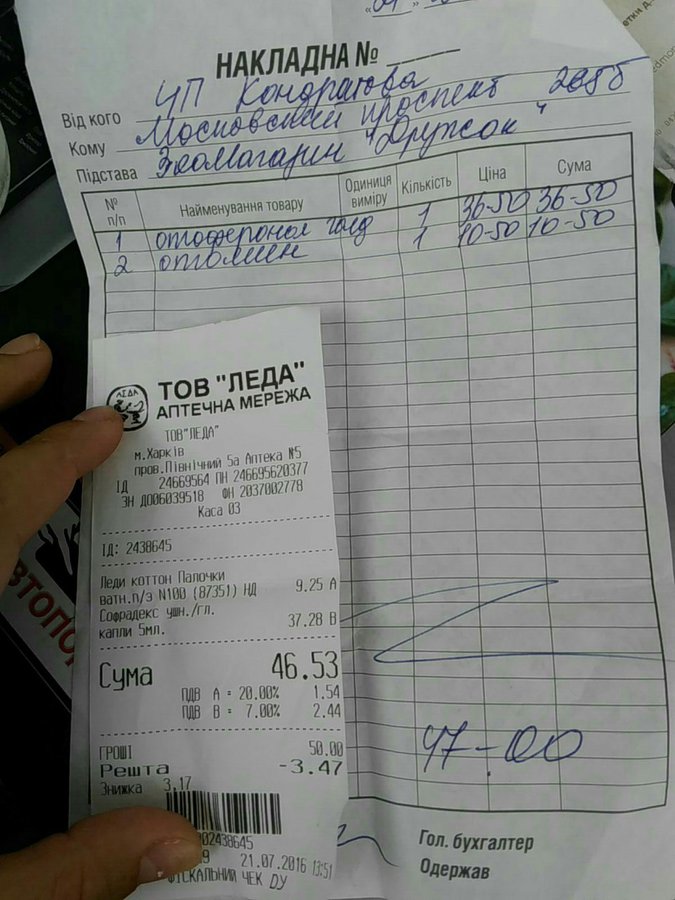 НАКЛАДНА №
Від кого ЧП Кондратова
Кому Московский проспект 265б
Підстава Зоомагазин "Дружок"
№ п/п Найменування товару Одиниця виміру Кількість Ціна Сума
1 отоферонол голд 1 36-50 36-50
2 1 10-50 10-50
47-00
Гол. бухгалтер
Одержав
ТОВ "ЛЕДА"
АПТЕЧНА МЕРЕЖА
ТОВ"ЛЕДА"
м.Харків
пров.Північний 5а Аптека №5
ІД 24669564 ПН 246695620377
ЗН ДО06039518 ФН 2037002778
Каса 03
ІД: 2438645
Леди коттон Палочки
ватн.п/э N100 (87351) НД 9.25 А
Софрадекс ушн./гл.
капли 5мл. 37.28 В
Сума 46.53
ПДВ А = 20.00% 1.54
ПДВ В = 7.00% 2.44
ГРОШІ 50.00
Решта -3.47
Знижка 3.17
02438645
21.07.2016 13:51
ФІСКАЛЬНИЙ ЧЕК